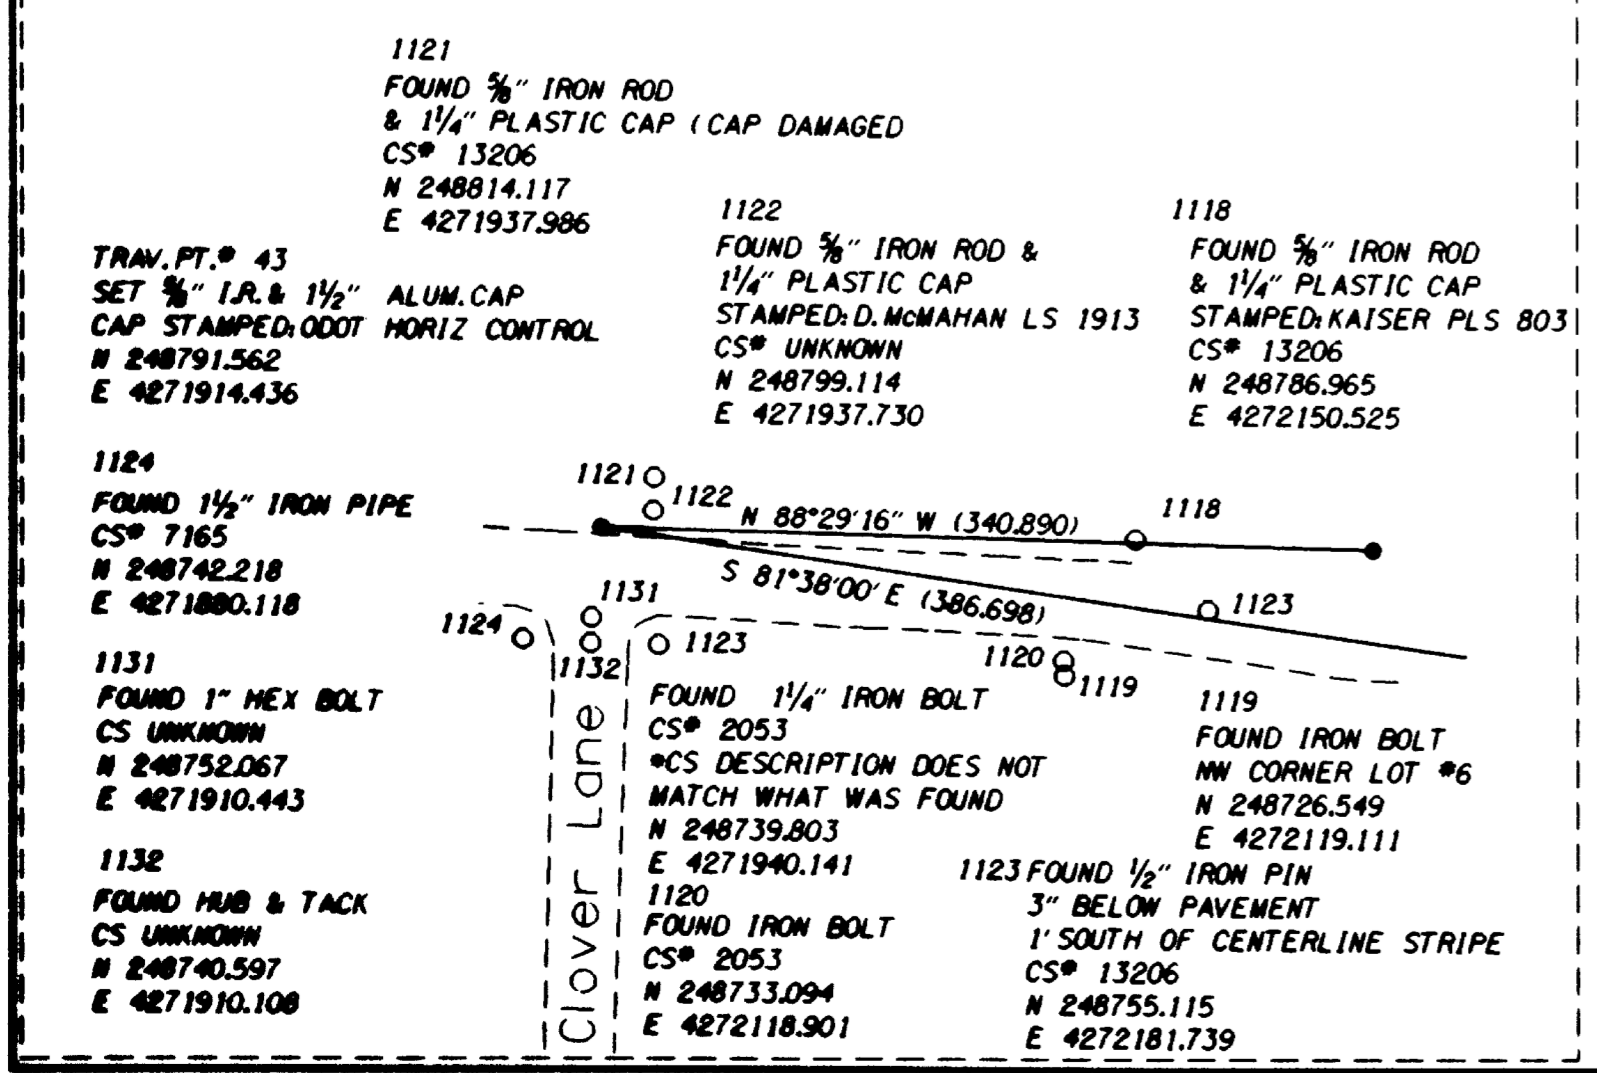 1121
FOUND ⅝" IRON ROD
& 1¼" PLASTIC CAP (CAP DAMAGED
CS# 13206
N 248814.117
E 4271937.986
TRAV.PT.# 43
SET ⅝" I.R.& 1½" ALUM.CAP
CAP STAMPED:ODOT HORIZ CONTROL
N 248791.562
E 4271914.436
1122
FOUND ⅝" IRON ROD &
1¼" PLASTIC CAP
STAMPED:D.McMAHAN LS 1913
CS# UNKNOWN
N 248799.114
E 4271937.730
1118
FOUND ⅝" IRON ROD
& 1¼" PLASTIC CAP
STAMPED:KAISER PLS 803
CS# 13206
N 248786.965
E 4272150.525
1124
FOUND 1½" IRON PIPE
CS# 7165
N 248742.218
E 4271880.118
1121
1122
N 88°29'16" W (340.890)
1118
S 81°38'00' E (386.698)
1123
1131
1124
1132
1123
1120
1119
1131
FOUND 1" HEX BOLT
CS UNKNOWN
N 248752.067
E 4271910.443
1132
FOUND HUB & TACK
CS UNKNOWN
N 248740.597
E 4271910.108
Clover Lane
FOUND 1¼" IRON BOLT
CS# 2053
*CS DESCRIPTION DOES NOT
MATCH WHAT WAS FOUND
N 248739.803
E 4271940.141
1120
FOUND IRON BOLT
CS# 2053
N 248733.094
E 4272118.901
1119
FOUND IRON BOLT
NW CORNER LOT #6
N 248726.549
E 4272119.111
1123 FOUND ½" IRON PIN
3" BELOW PAVEMENT
1' SOUTH OF CENTERLINE STRIPE
CS# 13206
N 248755.115
E 4272181.739